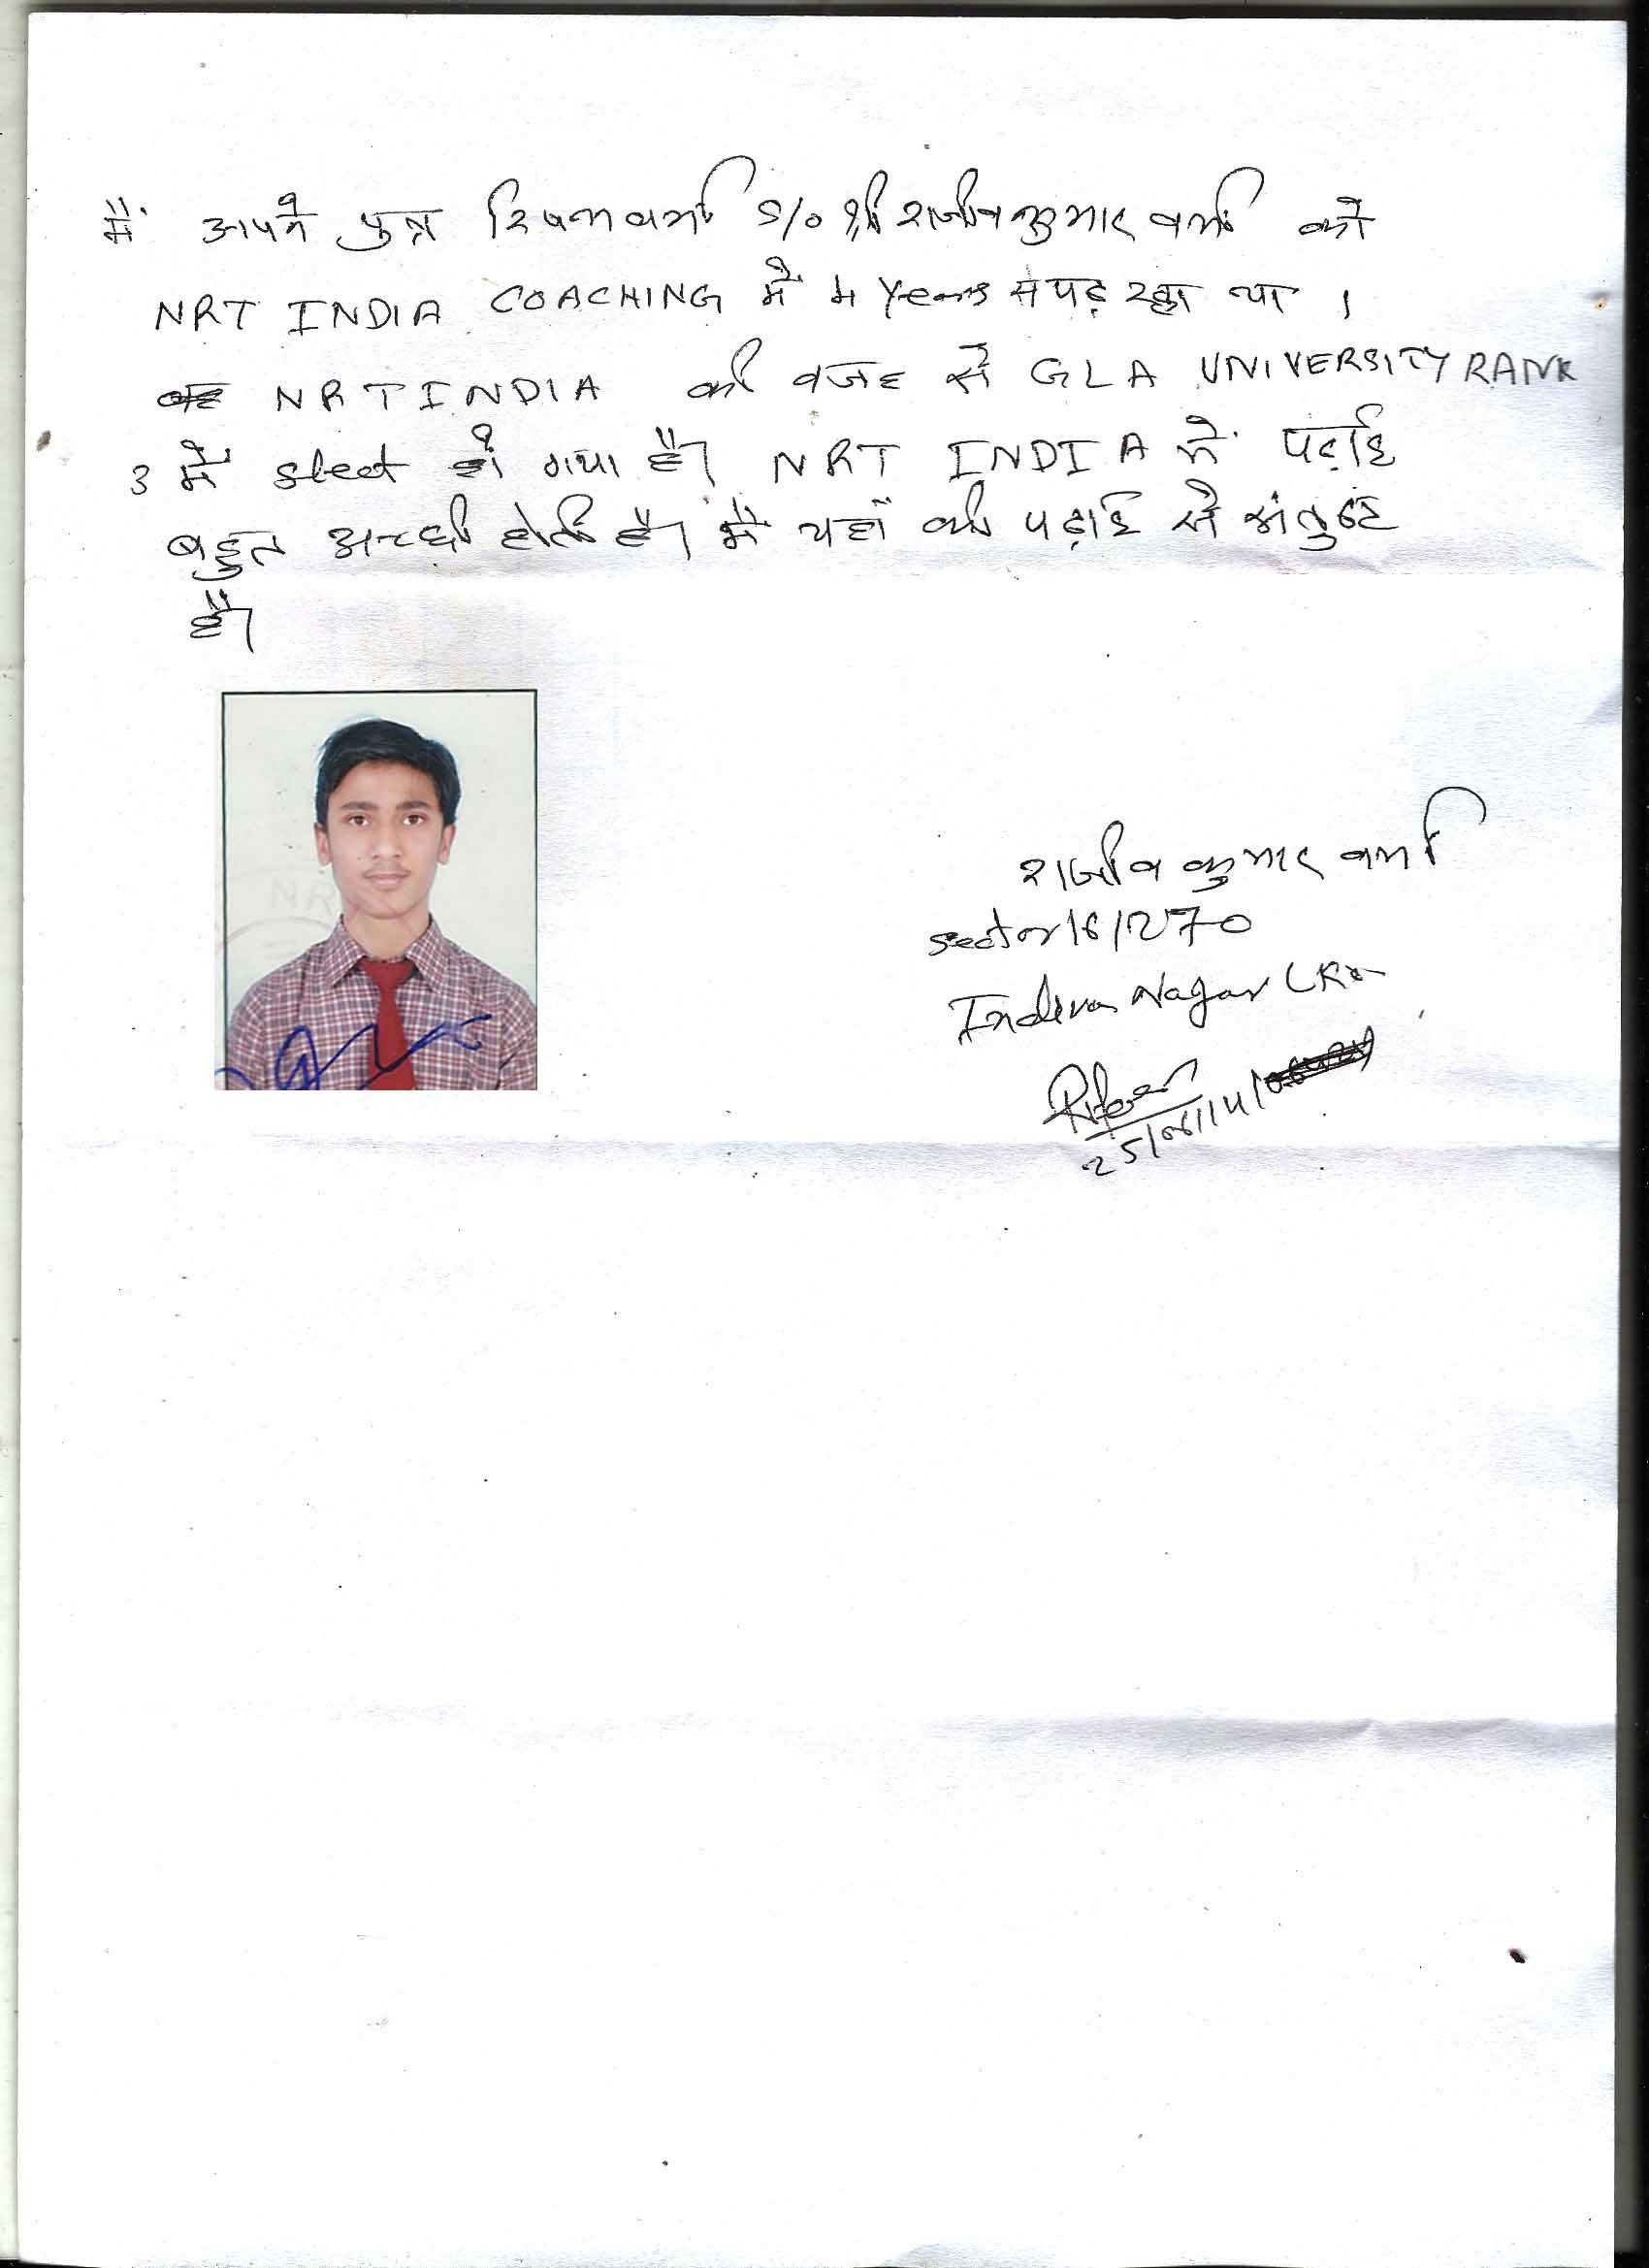 मैं अपने पुत्र रिषभ वर्मा S/o श्री राजीव कुमार वर्मा को
NRT INDIA COACHING में 4 Years से पढ़ रहा था ।
NRT INDIA की वजह से GLA UNIVERSITY RANK
3 में slect हो गया है। NRT INDIA में पढ़ाई
बहुत अच्छी होती है। मैं यहाँ की पढ़ाई से संतुष्ट
है।
NR
राजीव कुमार वर्मा
sector 16/1270
Indira Nagar LKo
25/06/14